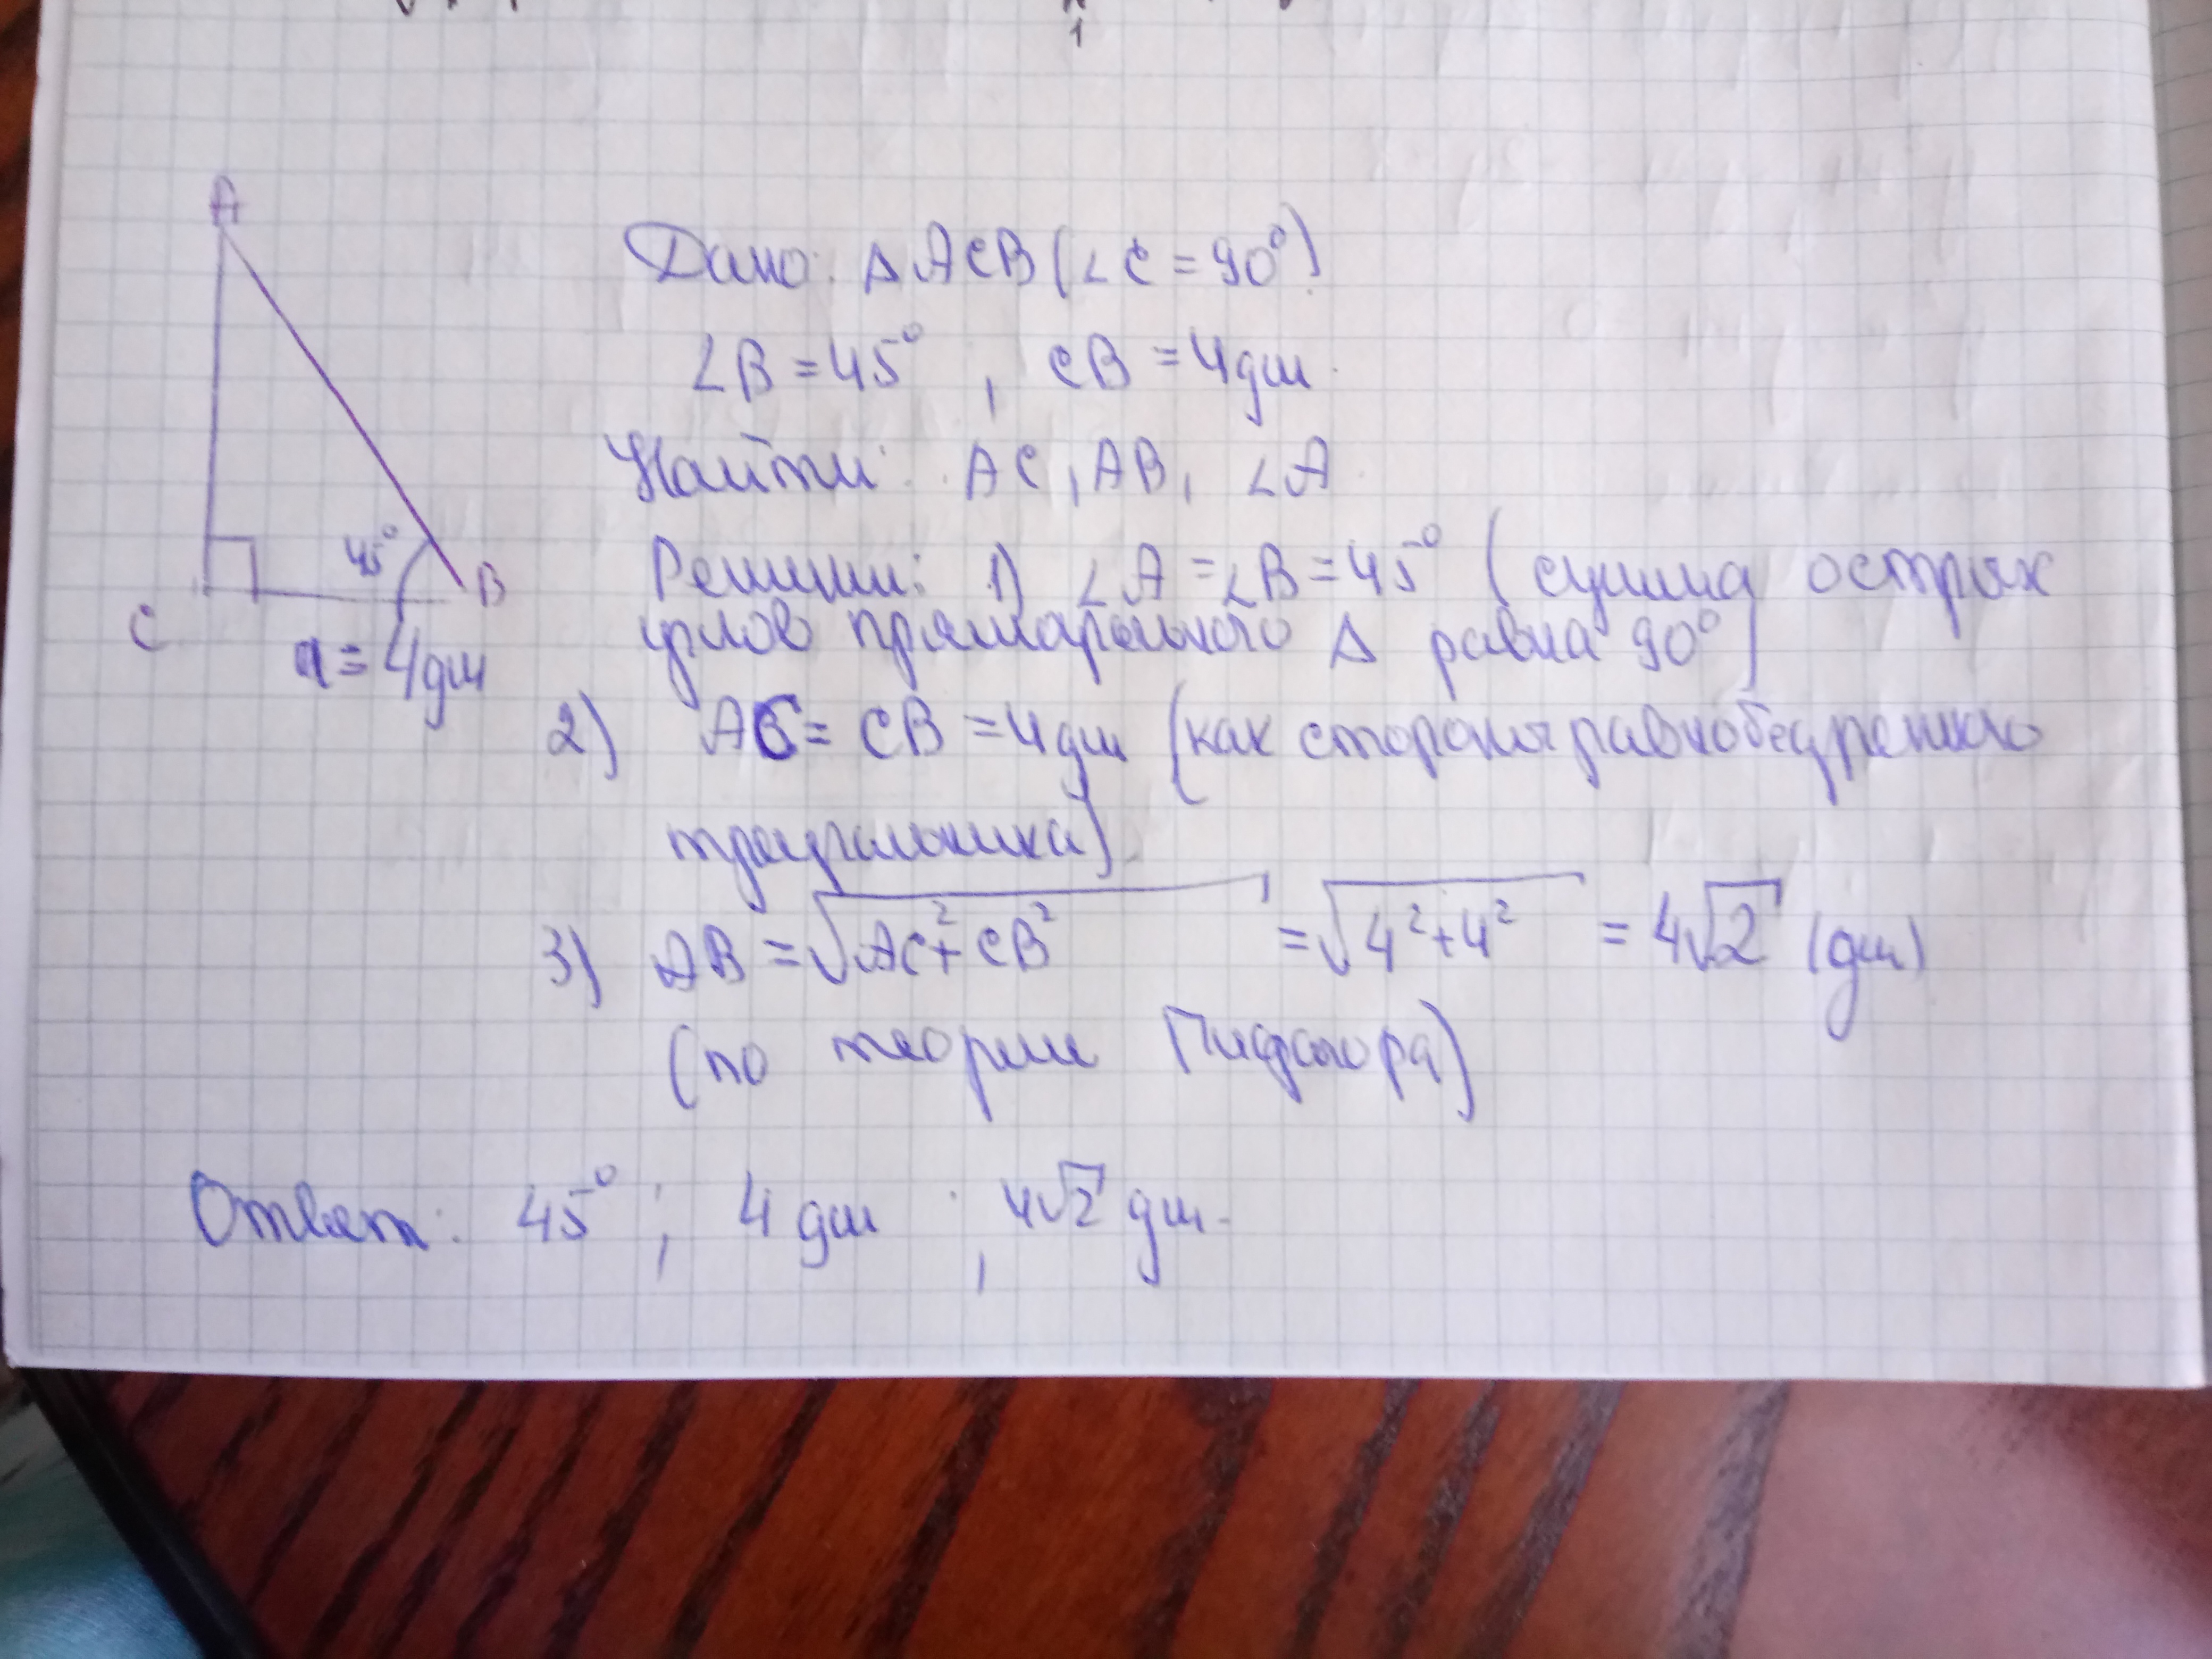 1
A
C
B
45°
a = 4дм
Дано: Δ ACB (∠C = 90°)
∠B = 45°, CB = 4дм.
Найти: AC, AB, ∠A
Решим: 1) ∠A = ∠B = 45° (сумма острых
углов прямоугольного Δ равна 90°)
2) AC = CB = 4дм (как стороны равнобедренного
треугольника).
3) AB = √(AC² + CB²) = √(4² + 4²) = 4√2 (дм)
(по теории Пифагора)
Ответ: 45°; 4 дм; 4√2 дм.